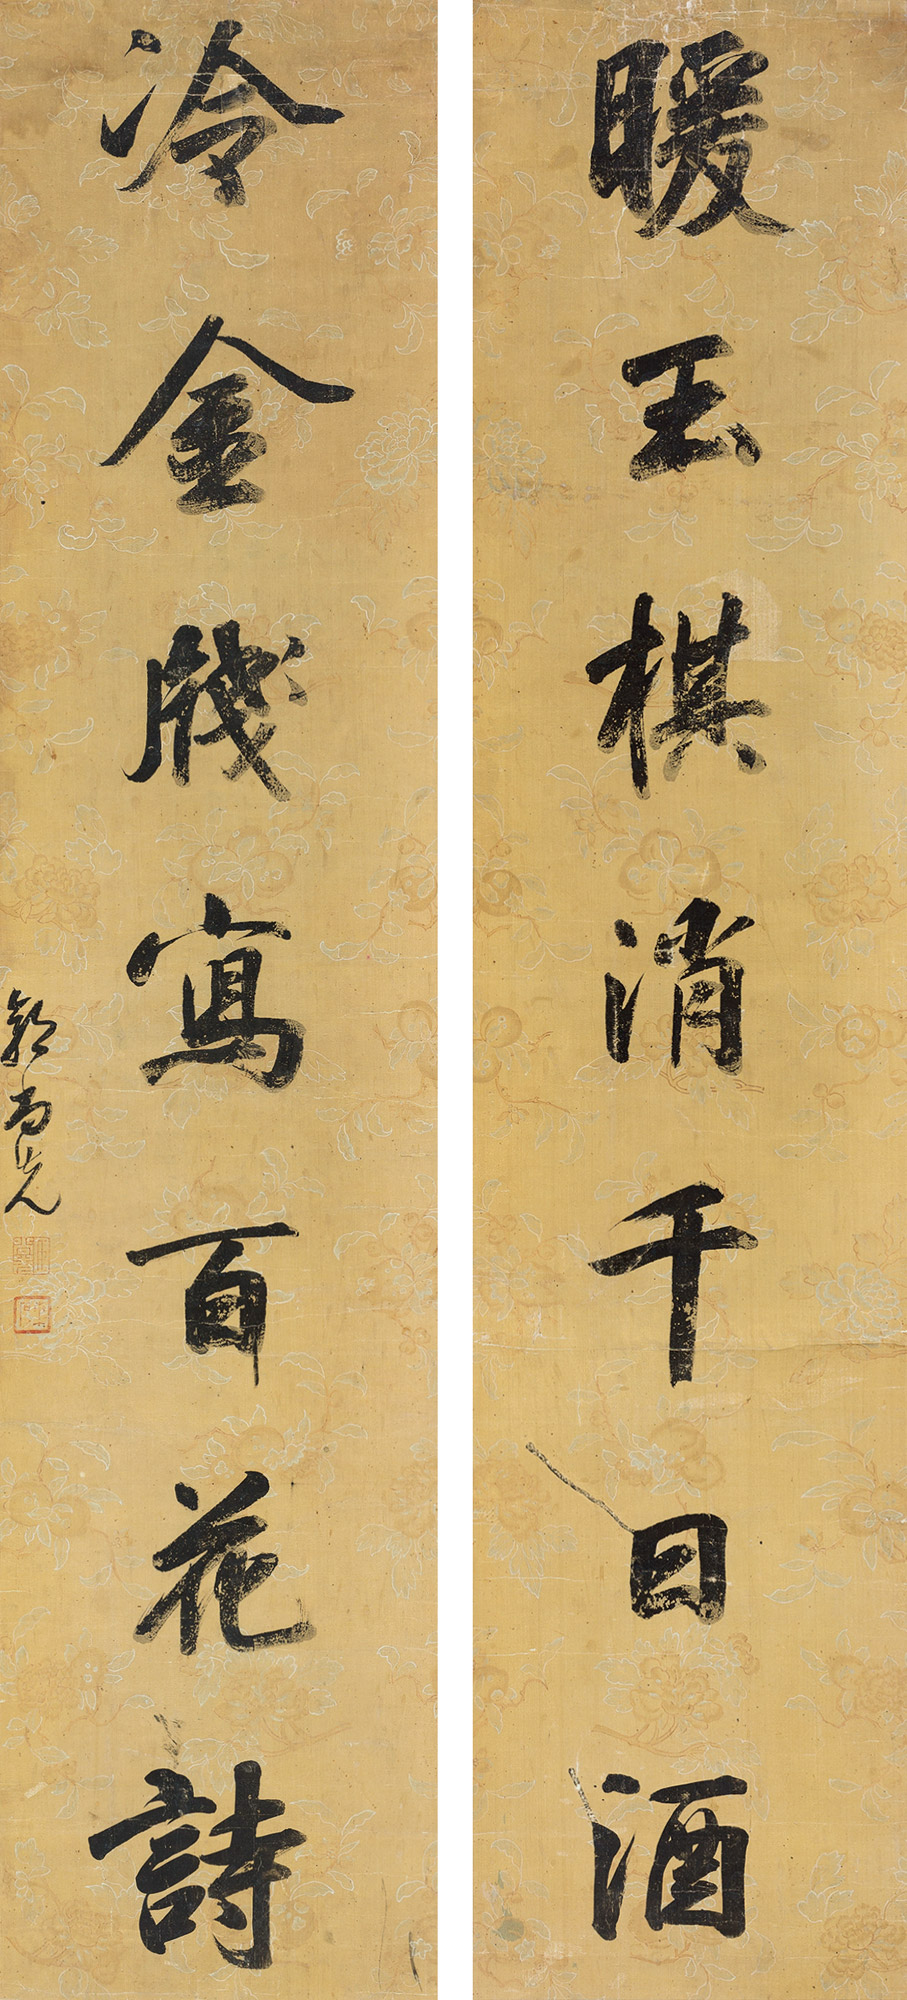 暖玉棋消千日酒
冷金牋寫百花詩
郭尚先